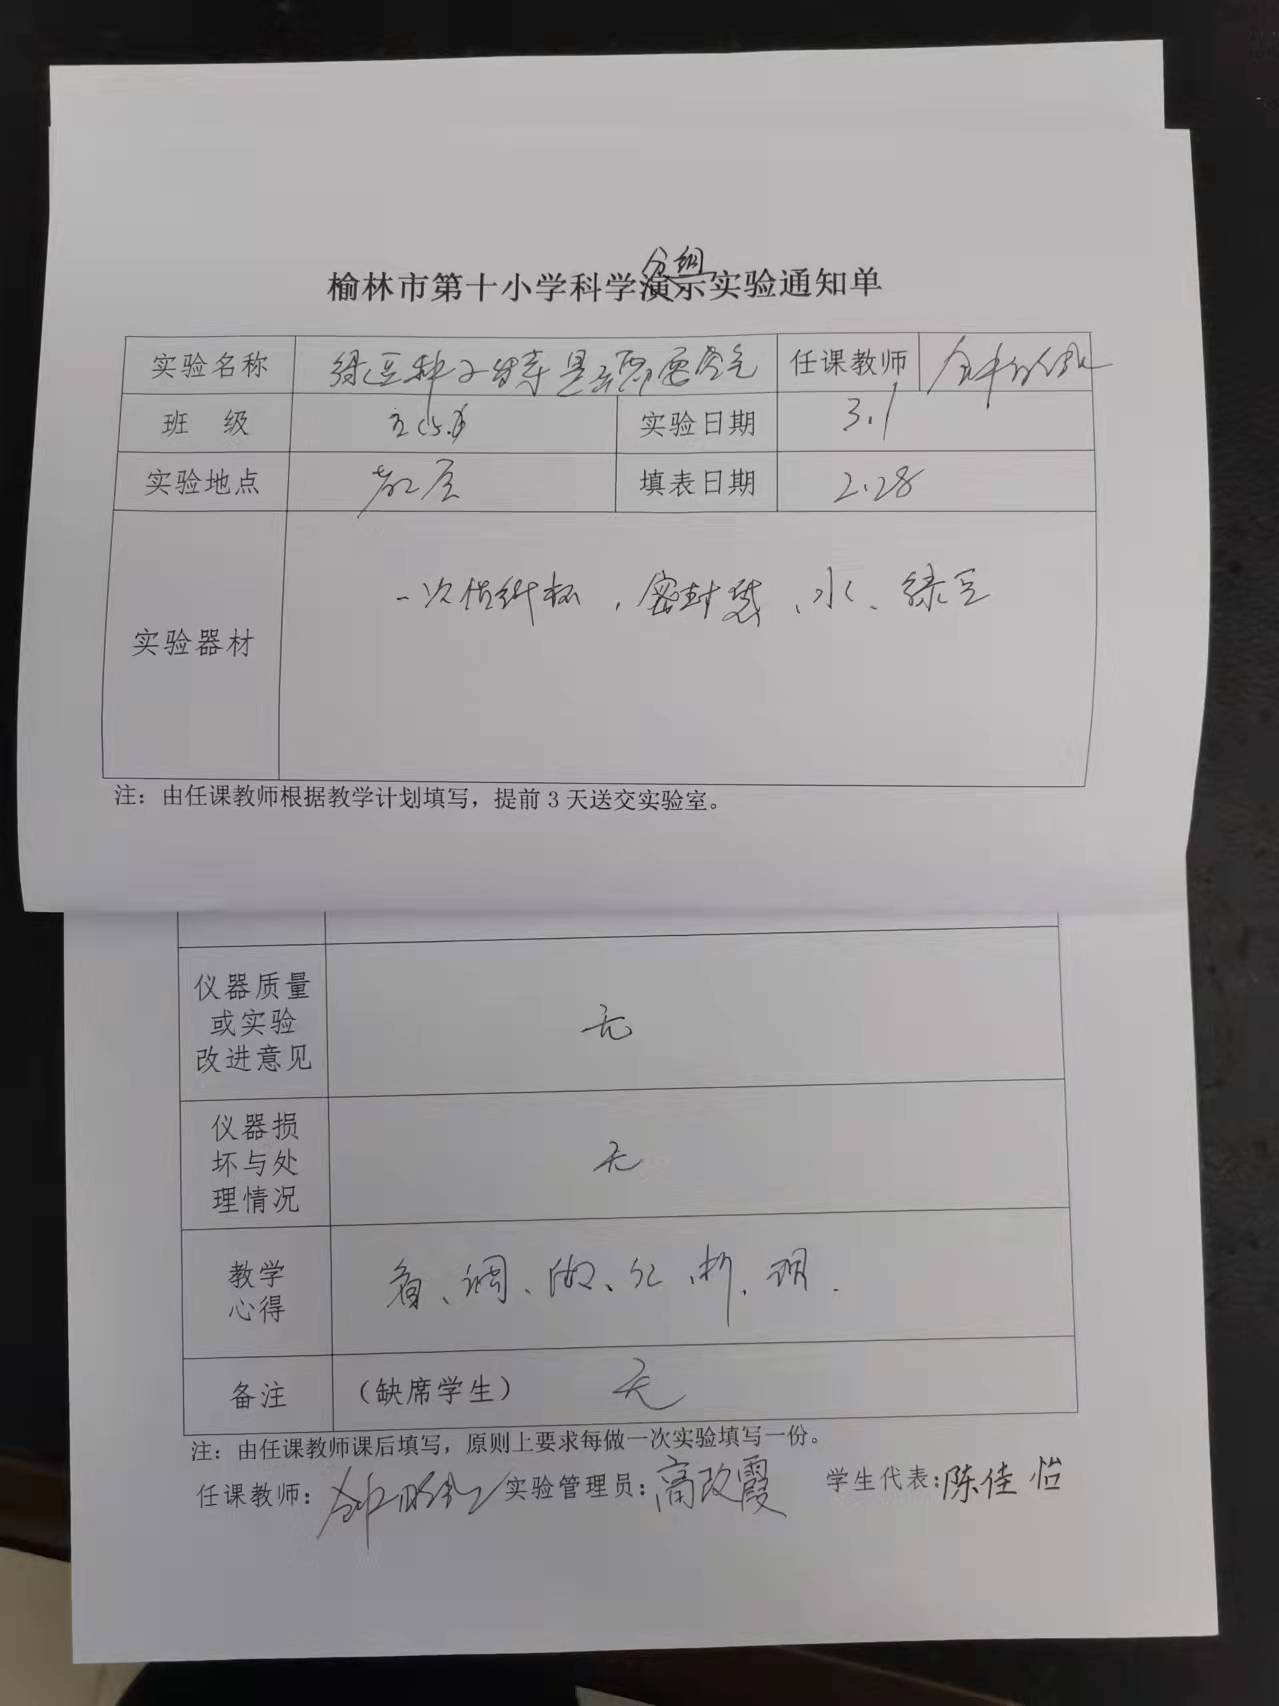 分组
榆林市第十小学科学演示实验通知单
实验名称 绿豆种子 是否需要空气 任课教师
班 级 实验日期 3.1
实验地点 教室 填表日期 2.28
实验器材 一次性纸杯，密封袋、水、绿豆
注：由任课教师根据教学计划填写，提前3天送交实验室。
仪器质量
或实验
改进意见 无
仪器损
坏与处
理情况 无
教学
心得 看、调、做、
备注 （缺席学生） 无
注：由任课教师课后填写，原则上要求每做一次实验填写一份。
任课教师： 实验管理员：高改霞 学生代表：陈佳怡